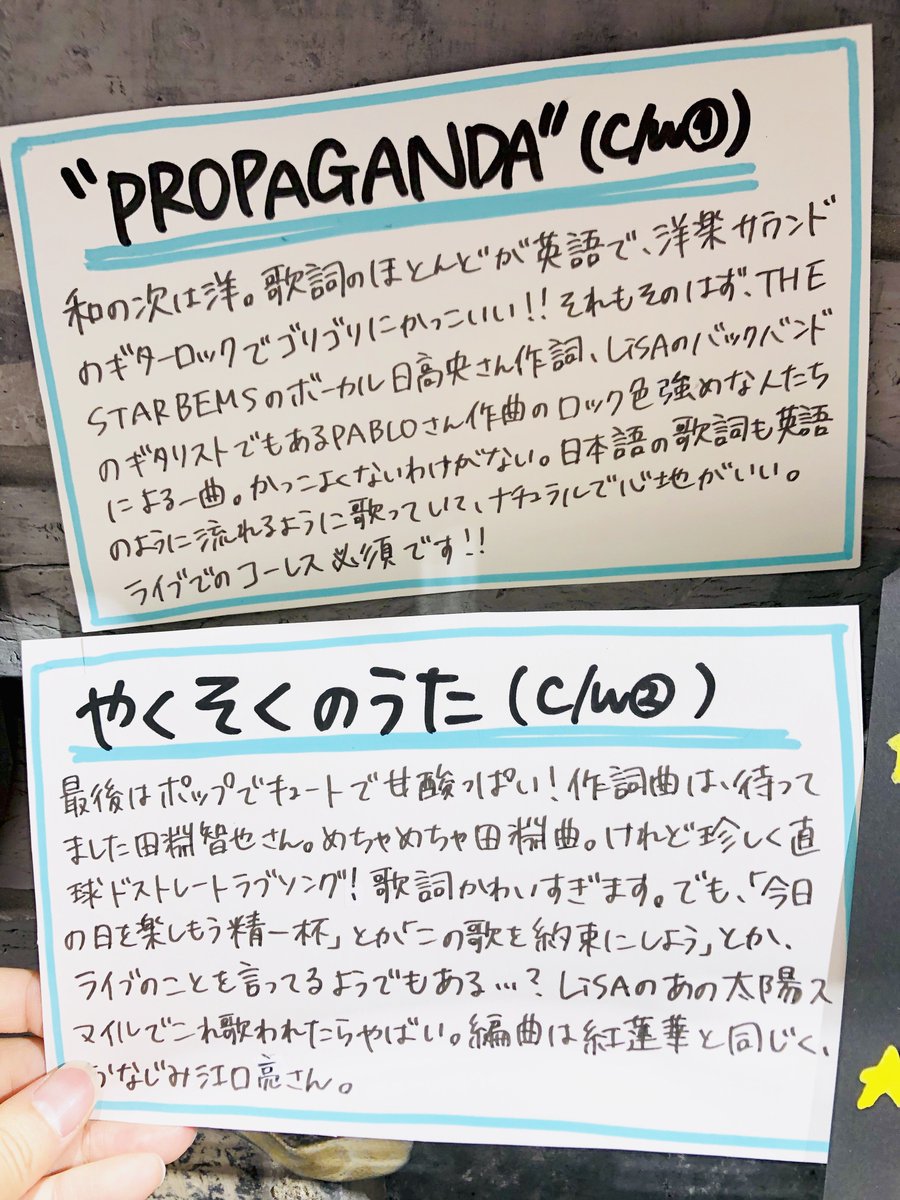 "PROPAGANDA" (C/W①)
和の次は洋。歌詞のほとんどが英語で、洋楽サウンド
のギターロックでゴリゴリにかっこいい!!それもそのはず、THE
STARBEMSのボーカル日高央さん作詞、LiSAのバックバンド
のギタリストでもあるPABLOさん作曲のロック色強めな人たち
による一曲。かっこよくないわけがない。日本語の歌詞も英語
のように流れるように歌っていて、ナチュラルで心地がいい。
ライブでのコーレス必須です!!
やくそくのうた (C/W②)
最後はポップでキュートで甘酸っぱい!作詞曲は、待って
ました田淵智也さん。めちゃめちゃ田淵曲。けれど珍しく直
球ドストレートラブソング!歌詞かわいすぎます。でも、「今日
の日を楽しもう精一杯」とか「この歌を約束にしよう」とか、
ライブのことを言ってるようでもある…?LiSAのあの太陽ス
マイルでこれ歌われたらやばい。編曲は紅蓮華と同じく、
なじみ江口亮さん。